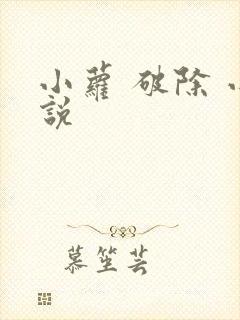 小蘿 破除 小
說
慕笙芸